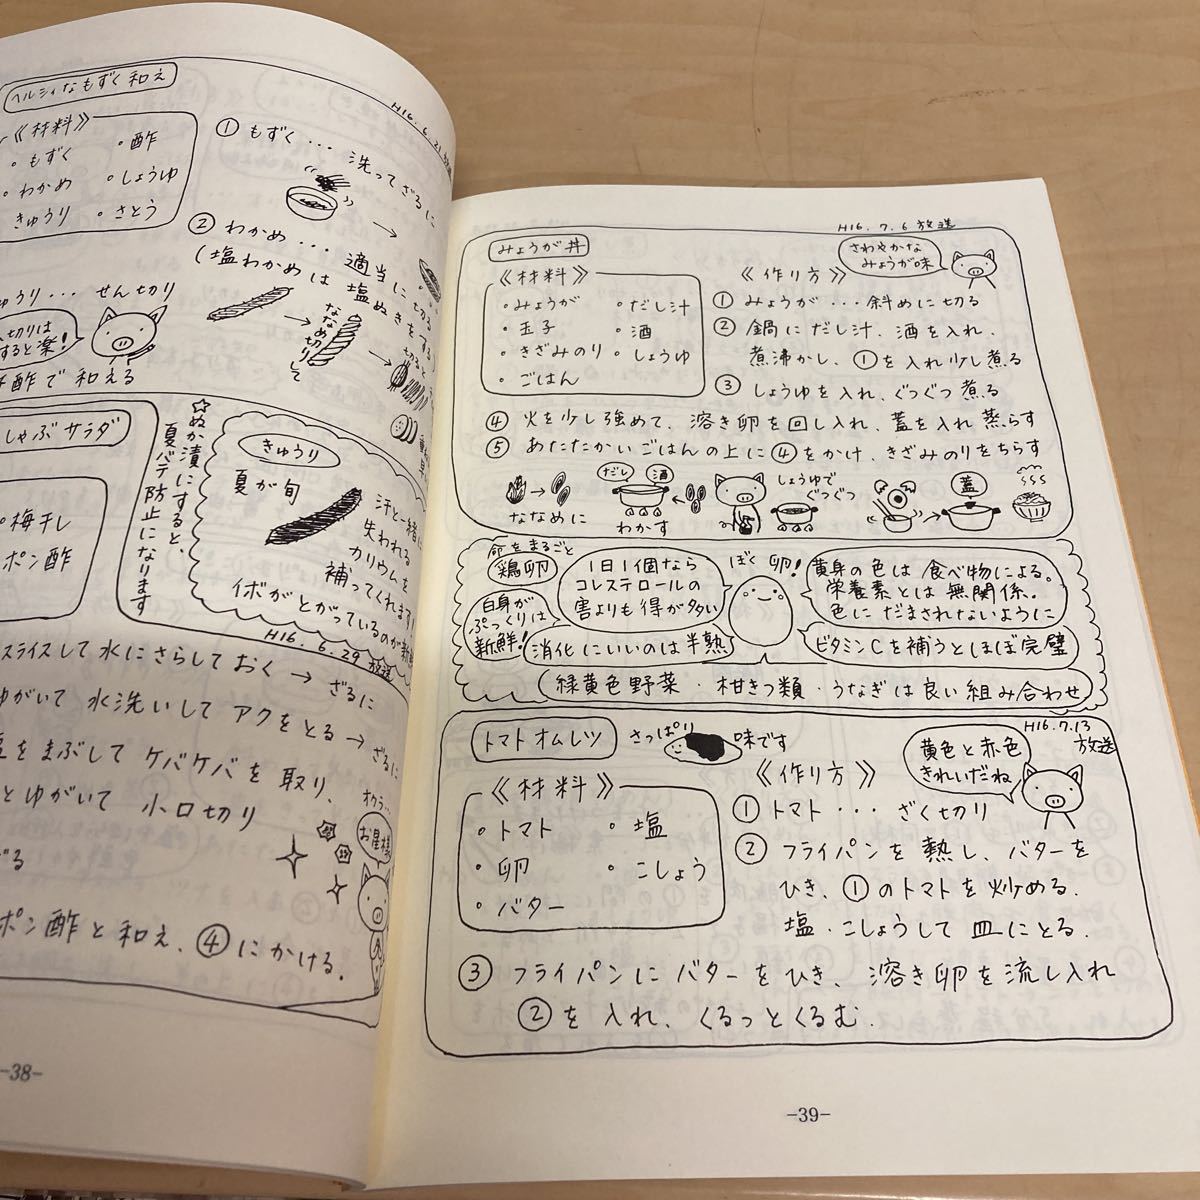 ヘルシィなもずく和え
H16.6.21放送
《材料》
・もずく
・わかめ
きゅうり
・酢
・しょうゆ
・さとう
① もずく・・・洗ってざるに
② わかめ・・・適当に切る
(塩わかめは塩ぬきをする)
きゅうり・・・せん切り
ななめ切りして
切りは
すると楽!
酢で和える
しゃぶサラダ
・梅干し
ポン酢
☆ぬか漬にすると、
夏バテ防止になります
きゅうり
夏が旬
汗と一緒に
失われる
カリウムを
補ってくれます
イボがとがっているのが新鮮
H16.6.29放送
スライスして水にさらしておく→ざるに
ゆがいて 水洗いして アクをとる→ざるに
塩をまぶして ケバケバを取り、
とゆがいて 小口切り
オクラ…
お星様
ポン酢と和え、④にかける。
-38-
H16.7.6放送
みょうが丼
さわやかな
みょうが味
《材料》
・みょうが
・玉子
・きざみのり
・ごはん
・だし汁
・酒
・しょうゆ
《作り方》
① みょうが・・・斜めに切る
② 鍋にだし汁、酒を入れ、
煮沸かし、①を入れ少し煮る
③ しょうゆを入れ、ぐつぐつ煮る
④ 火を少し強めて、溶き卵を回し入れ、蓋を入れ蒸らす
⑤ あたたかいごはんの上に④をかけ、きざみのりをちらす
ななめに
だし
酒
わかす
しょうゆで
ぐつぐつ
蓋
命をまるごと
鶏卵
白身が
ぷっくりは
新鮮!
1日1個なら
コレステロールの
害よりも得が多い
消化にいいのは半熟
ぼく卵!
黄身の色は食べ物による。
栄養素とは無関係。
色にだまされないように
ビタミンCを補うとほぼ完璧
緑黄色野菜・柑きつ類・うなぎは良い組み合わせ
H16.7.13
放送
トマトオムレツ
さっぱり
味です
黄色と赤色
きれいだね
《材料》
・トマト
・卵
・バター
・塩
・こしょう
《作り方》
① トマト・・・ざく切り
② フライパンを熱し、バターを
ひき、①のトマトを炒める。
塩・こしょうして皿にとる。
③ フライパンにバターをひき、溶き卵を流し入れ
②を入れ、くるっとくるむ。
-39-